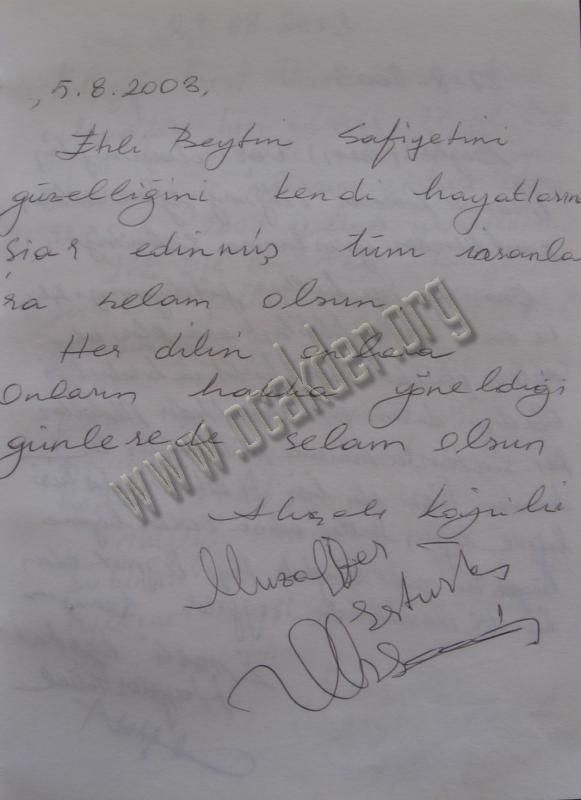 5.8.2003,
Ehli Beytin Safiyetini
güzelliğini kendi hayatların
Siar edinmiş tüm insanla
ra selam olsun
Her dilin onlara
Onların hakka yöneldiği
günlerede selam olsun
Köyünü
Muzaffer
www.ocakder.org